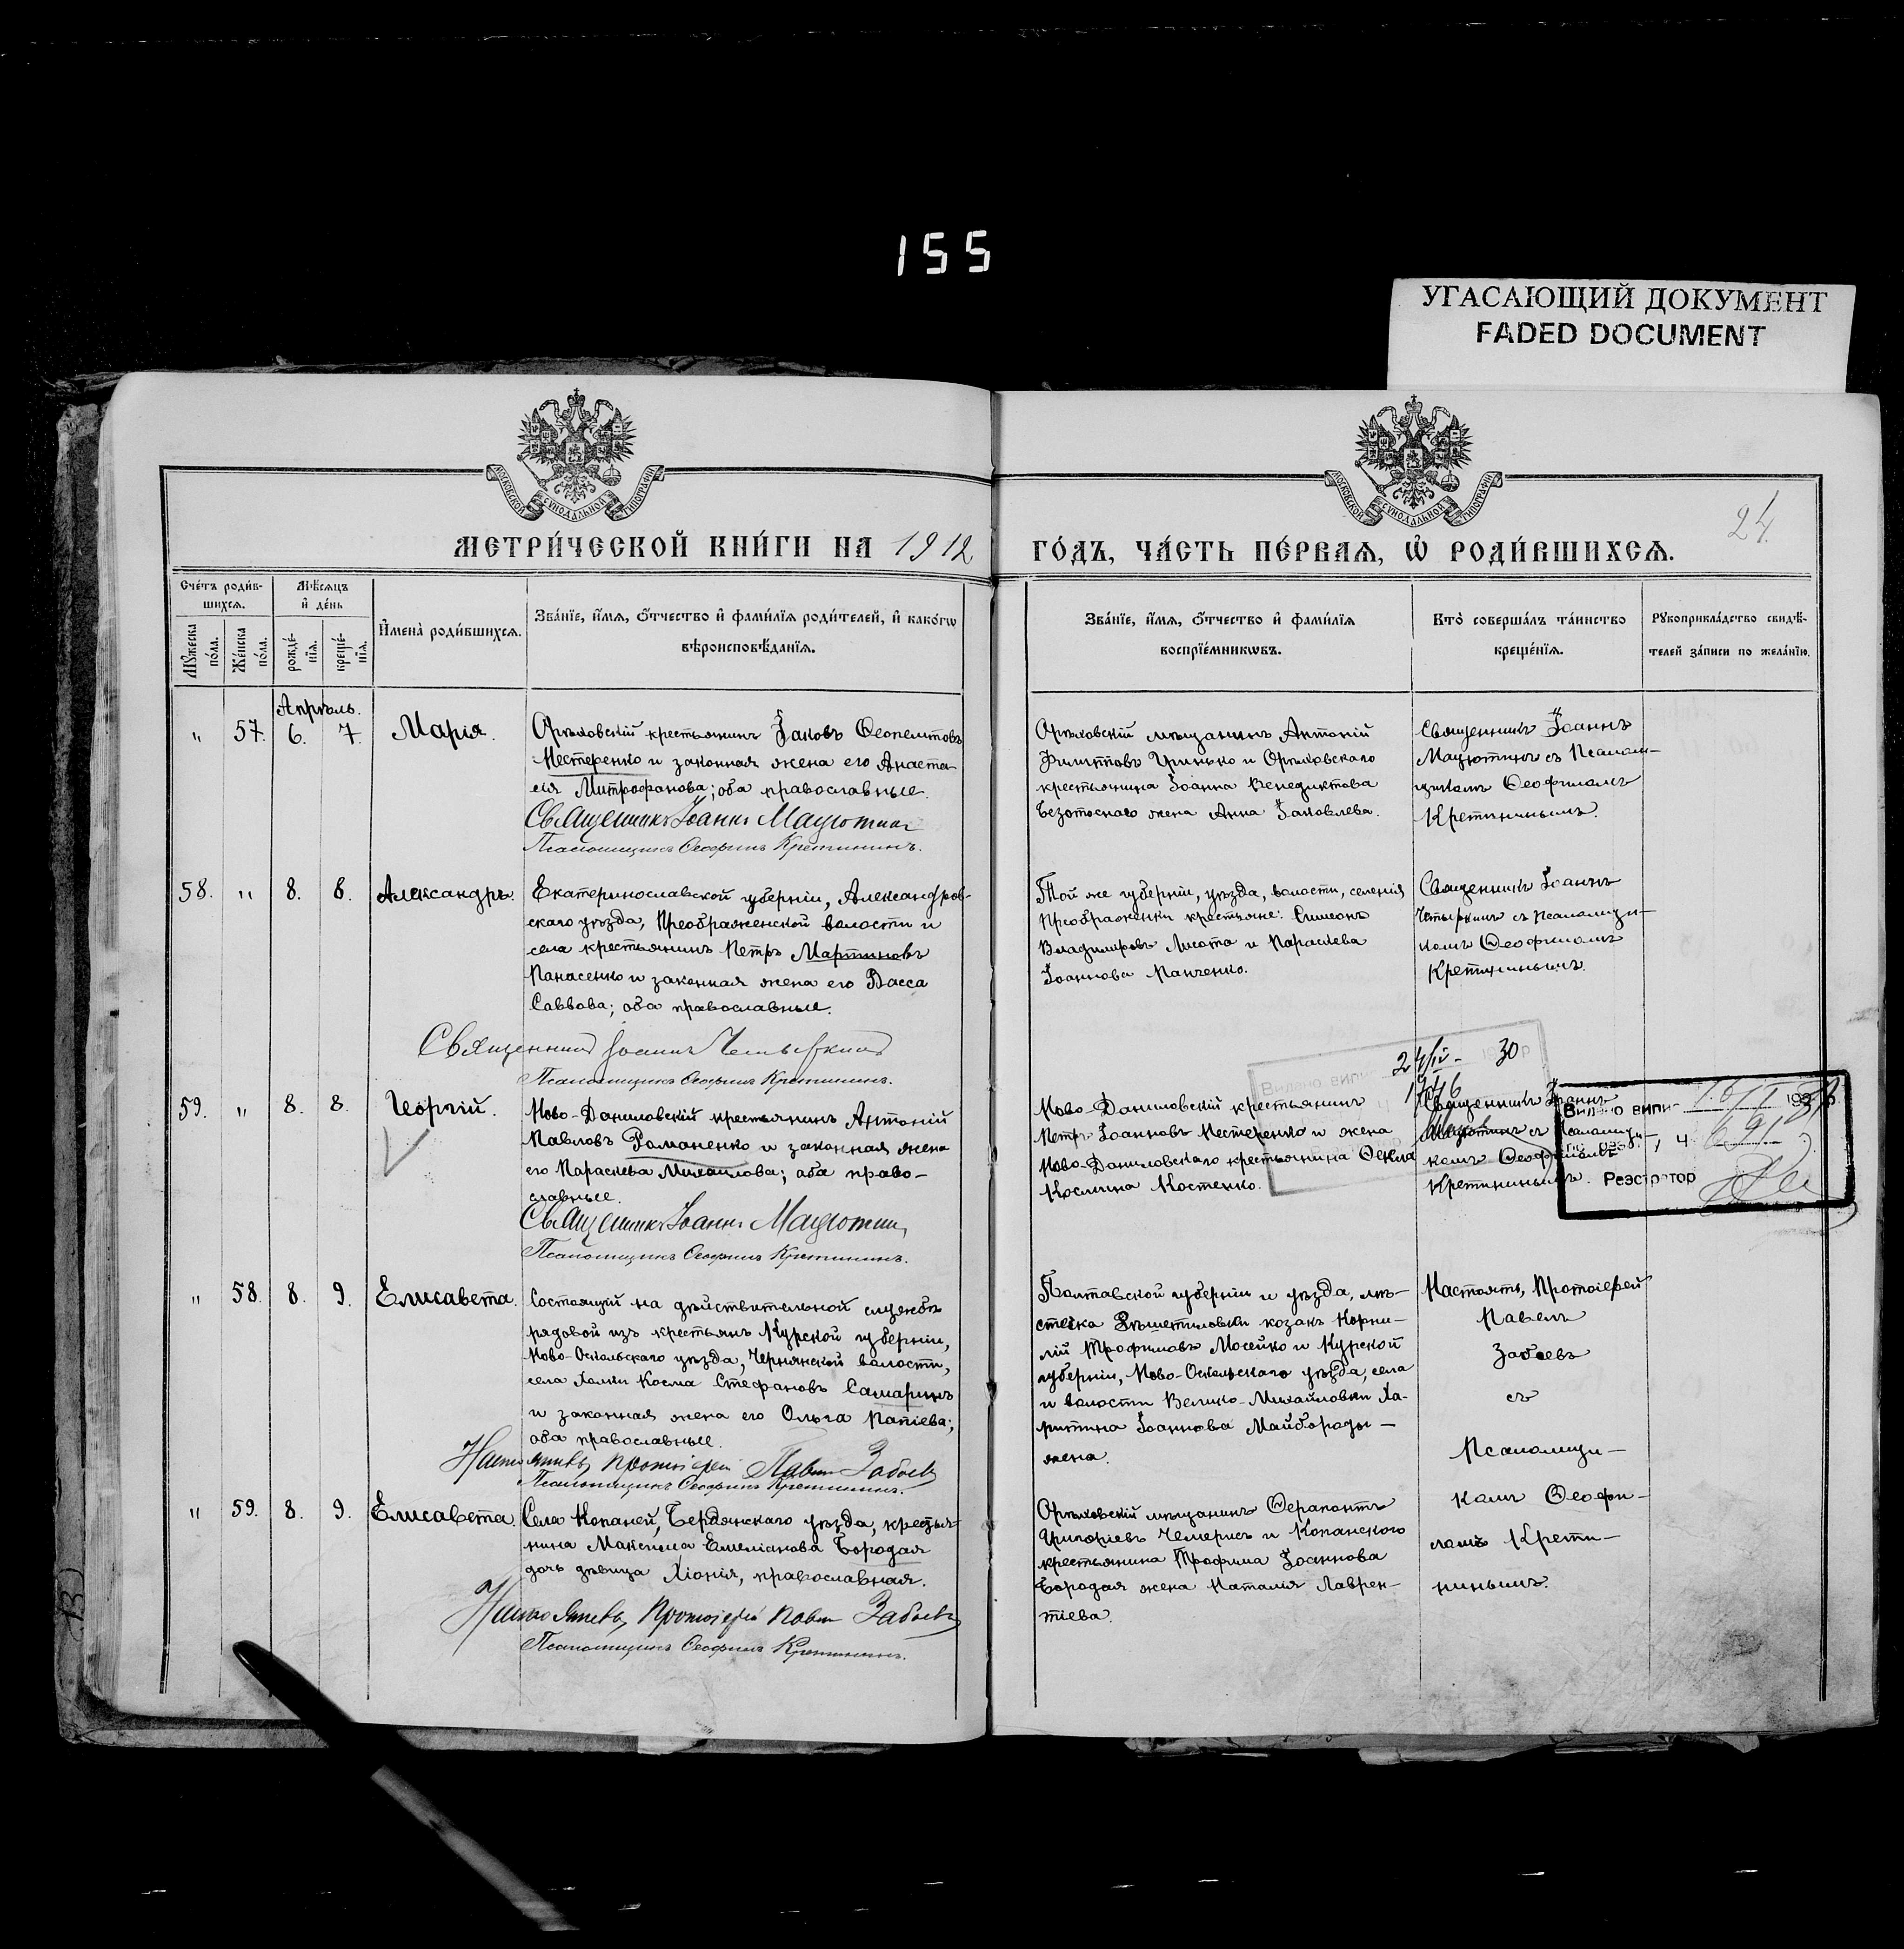 155
УГАСАЮЩИЙ ДОКУМЕНТ
FADED DOCUMENT
МОСКОВСКОЙ СѴНОДАЛЬНОЙ ТИПОГРАФІИ
МОСКОВСКОЙ СѴНОДАЛЬНОЙ ТИПОГРАФІИ
24.
МЕТРИ́ЧЕСКОЙ КНИ́ГИ НА 1912
ГО́ДЪ, ЧА́СТЬ ПЕ́РВАЯ, Ѡ҆ РОДИ́ВШИХСѦ.
Сче́тъ роди́в-
шихсѧ.
Мꙋ́жеска по́ла.
Же́нска по́ла.
Мѣ́сѧцъ
и҆ де́нь
рожде́-
нїѧ.
креще́-
нїѧ.
И҆мена̀ роди́вшихсѧ.
Зва́нїе, и҆́мѧ, ѻ҆́тчество и҆ фами́лїѧ роди́телей, и҆ како́гѡ
вѣроисповѣ́данїѧ.
Зва́нїе, и҆́мѧ, ѻ҆́тчество и҆ фами́лїѧ
воспрїе́мникѡвъ.
Кто̀ соверша́лъ та́инство
креще́нїѧ.
Рꙋкоприкла́дство свидѣ́-
телей за́писи по жела́нїю.
Апрѣль.
" 57. 6. 7. Марія.
Орѣховскій крестьянинъ Іаковъ Ѳеопемптовъ
Нестеренко и законная жена его Анаста-
сія Митрофанова; оба православные.
Священникъ Іоаннъ Мацютинъ
Псаломщикъ Ѳеофилъ Кретининъ.
Орѣховскій мѣщанинъ Антоній
Филипповъ Гринько и Орѣховскаго
крестьянина Іоанна Венедиктова
Безотоснаго жена Анна Іаковлева.
Священникъ Іоаннъ
Мацютинъ съ Псалом-
щикомъ Ѳеофиломъ
Кретининымъ.
58. " 8. 8. Александръ.
Екатеринославской губерніи, Александров-
скаго уѣзда, Преображенской волости и
села крестьянинъ Петръ Мартиновъ
Панасенко и законная жена его Васса
Саввова; оба православные.
Священникъ Іоаннъ Четыркинъ
Псаломщикъ Ѳеофилъ Кретининъ.
Той же губерніи, уѣзда, волости, селенія
Преображенки крестьяне: Симеонъ
Владимировъ Лисота и Параскева
Іоаннова Панченко.
Священникъ Іоаннъ
Четыркинъ съ псаломщи-
комъ Ѳеофиломъ
Кретининымъ.
59. " 8. 8. Георгій.
Ново-Даниловскій крестьянинъ Антоній
Павловъ Романенко и законная жена
его Параскева Михаилова; оба право-
славные.
Священникъ Іоаннъ Мацютинъ
Псаломщикъ Ѳеофилъ Кретининъ.
Ново-Даниловскій крестьянинъ
Петръ Іоанновъ Нестеренко и жена
Ново-Даниловскаго крестьянина Ѳекла
Космина Костенко.
Священникъ Іоаннъ
Мацютинъ съ Псаломщи-
комъ Ѳеофиломъ
Кретининымъ.
Видано випис
30
Видано випис
ч 691
Реэстратор
" 58. 8. 9. Елисавета.
Состоящій на дѣйствительной службѣ
рядовой изъ крестьянъ Курской губерніи,
Ново-Оскольскаго уѣзда, Чернянской волости,
села Холки Косма Стефановъ Самаринъ
и законная жена его Ольга Папіева;
оба православные.
Настоятель, Протоіерей Павелъ Забоевъ
Псаломщикъ Ѳеофилъ Кретининъ.
Полтавской губерніи и уѣзда, мѣ-
стечка Рѣшетиловки козакъ Корни-
лій Трофимовъ Мосейко и Курской
губерніи, Ново-Оскольскаго уѣзда, села
и волости Велико-Михайловки Ха-
ритина Іоаннова Майбороды —
жена.
Настоятъ, Протоіерей
Павелъ
Забоевъ
съ
Псаломщи-
комъ Ѳеофи-
ломъ Крети-
нинымъ.
" 59. 8. 9. Елисавета.
Села Копаней, Бердянскаго уѣзда, крестья-
нина Максима Емеліанова Бородая
дочь дѣвица Хіонія, православная.
Настоятель, Протоіерей Павелъ Забоевъ
Псаломщикъ Ѳеофилъ Кретининъ.
Орѣховскій мѣщанинъ Ѳерапонтъ
Григоріевъ Чемерисъ и Копанскаго
крестьянина Трофима Іоаннова
Бородая жена Наталія Лаврен-
тіева.